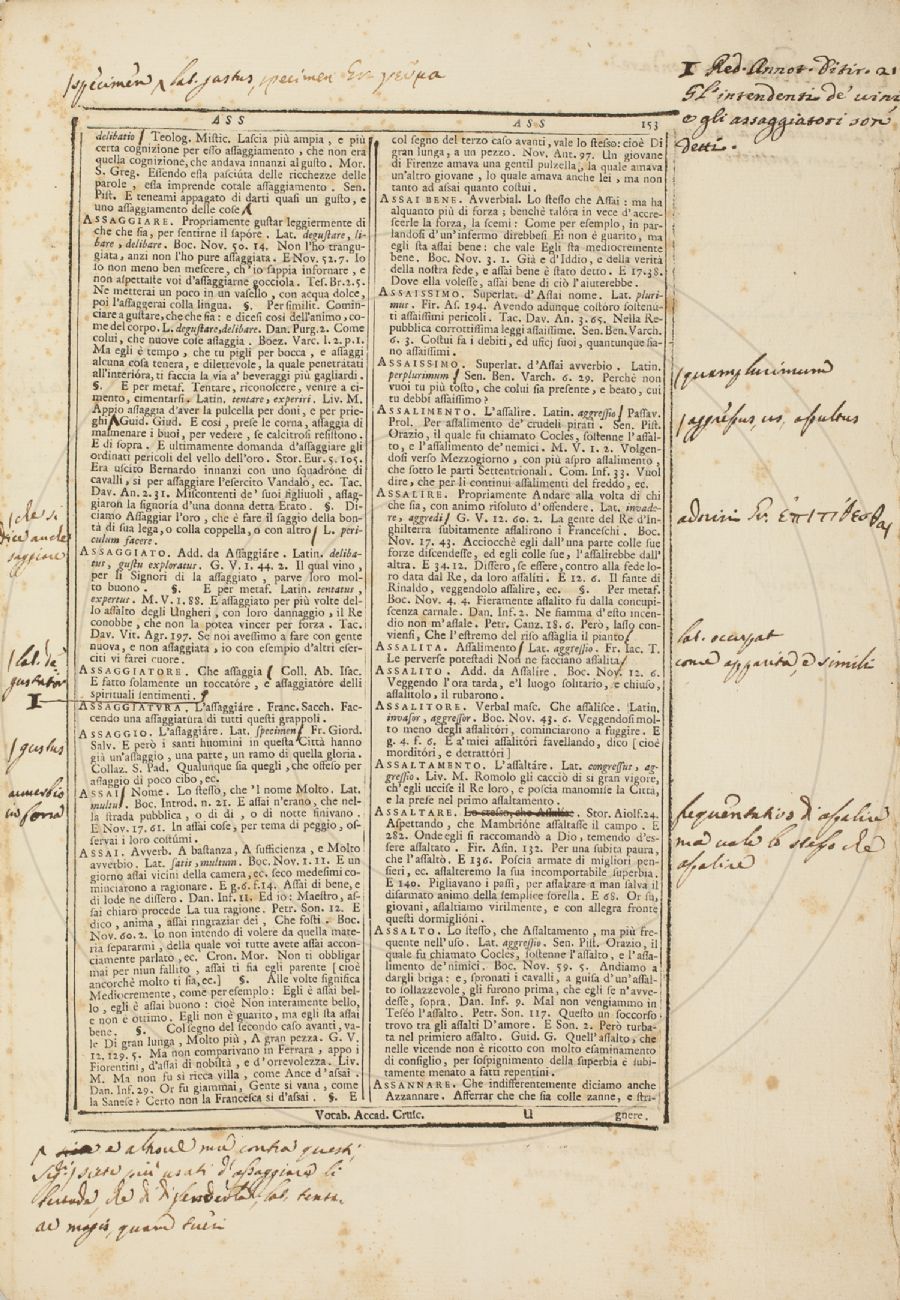 specimen lat. gustus, specimen
1 Red. Annot. Ditir. 21
Gl'intendenti de' vini
e gli assaggiatori son
detti.
ASS
ASS 153
delibatio Teolog. Mistic. Lascia più ampia, e più
certa cognizione per esso assaggiamento, che non era
quella cognizione, che andava innanzi al gusto. Mor.
S. Greg. Essendo essa pasciúta delle ricchezze delle
parole, essa imprende cotale assaggiamento. Sen.
Pist. E teneami appagato di darti quasi un gusto, e
uno assaggiamento delle cose
ASSAGGIARE. Propriamente gustar leggiermente di
che che sia, per sentirne il sapóre. Lat. degustare, li-
bare, delibare. Boc. Nov. 50. 14. Non l'ho trangu-
giata, anzi non l'ho pure assaggiata. E Nov. 52. 7. Io
io non meno ben mescere, ch'io sappia infornare, e
non aspettaste voi d'assaggiarne gocciola. Tes. Br. 2. 5.
Ne metterai un poco in un vasello, con acqua dolce,
poi l'assaggerai colla lingua. §. Per similit. Comin-
ciare a gustare, che che sia: e dicesi così dell'animo, co-
me del corpo. L. degustare, delibare. Dan. Purg. 2. Come
colui, che nuove cose assaggia. Boez. Varc. l. 2. p. 1.
Ma egli è tempo, che tu pigli per bocca, e assaggi
alcuna cosa tenera, e dilettevole, la quale penetratati
all'interióra, ti faccia la via a' beveraggi più gagliardi.
§. E per metaf. Tentare, riconoscere, venire a ci-
mento, cimentarsi. Latin. tentare, experiri. Liv. M.
Appio assaggia d'aver la pulcella per doni, e per prie-
ghi Guid. Giud. E così, prese le corna, assaggia di
malmenare i buoi, per vedere, se calcitrosi resistono.
E di sopra. E ultimamente domanda d'assaggiare gli
ordinati pericoli del vello dell'oro. Stor. Eur. 5. 105.
Era uscito Bernardo innanzi con uno squadróne di
cavalli, si per assaggiare l'esercito Vandalo, ec. Tac.
Dav. An. 2. 31. Miscontenti de' suoi figliuoli, assag-
giaron la signoria d'una donna detta Erato. §. Di-
ciamo Assaggiar l'oro, che è fare il saggio della bon-
tà di sua lega, o colla coppella, o con altro L. peri-
culum facere.
ASSAGGIATO. Add. da Assaggiáre. Latin. deliba-
tus, gustu exploratus. G. V. 1. 44. 2. Il qual vino,
per li Signori di la assaggiato, parve loro mol-
to buono. §. E per metaf. Latin. tentatus,
expertus. M. V. 1. 88. E assaggiato per più volte del-
lo assalto degli Ungheri, con loro dannaggio, il Re
conobbe, che non la potea vincer per forza. Tac.
Dav. Vit. Agr. 197. Se noi avessimo a fare con gente
nuova, e non assaggiata, io con esempio d'altri eser-
citi vi farei cuore.
ASSAGGIATORE. Che assaggia Coll. Ab. Isac.
E fatto solamente un toccatóre, e assaggiatóre delli
spirituali sentimenti.
ASSAGGIATVRA. L'assaggiáre. Franc. Sacch. Fac-
cendo una assaggiatúra di tutti questi grappoli.
ASSAGGIO. L'assaggiáre. Lat. specimen Fr. Giord.
Salv. E però i santi huomini in questa Città hanno
già un'assaggio, una parte, un ramo di quella gloria.
Collaz. S. Pad. Qualunque sia quegli, che offeso per
assaggio di poco cibo, ec.
ASSAI Nome. Lo stesso, che 'l nome Molto. Lat.
multus. Boc. Introd. n. 21. E assai n'erano, che nel-
la strada pubblica, o di dì, o di notte finivano.
E Nov. 17. 61. In assai cose, per tema di peggio, os-
servai i loro costúmi.
ASSAI. Avverb. A bastanza, A sufficienza, e Molto
avverbio. Lat. satis, multum. Boc. Nov. 1. 11. E un
giorno assai vicini della camera, ec. seco medesimi co-
minciarono a ragionare. E g. 6. f. 14. Assai di bene, e
di lode ne dissero. Dan. Inf. 11. Ed io: Maestro, as-
sai chiaro procede La tua ragione. Petr. Son. 12. E
dico, anima, assai ringraziar dei, Che fosti. Boc.
Nov. 60. 2. Io non intendo di volere da quella mate-
ria separarmi, della quale voi tutte avete assai accon-
ciamente parlato, ec. Cron. Mor. Non ti obbligar
mai per niun fallito, assai ti sia egli parente [cioè
ancorchè molto ti sia, ec.] §. Alle volte significa
Mediocremente, come per esempio: Egli è assai bel-
lo, egli è assai buono: cioè Non interamente bello,
e non è ottimo. Egli non è guarito, ma egli sta assai
bene. §. Col segno del secondo caso avanti, va-
le Di gran lunga, Molto più, A gran pezza. G. V.
12. 129. 5. Ma non comparivano in Ferrara, appo i
Fiorentini, d'assai di nobiltà, e d'orrevolezza. Liv.
M. Ma non fu si ricca villa, come Ance d'assai.
Dan. Inf. 29. Or fu giammai, Gente sì vana, come
la Sanese? Certo non la Francesca sì d'assai. §. E
col segno del terzo caso avanti, vale lo stesso: cioè Di
gran lunga, a un pezzo. Nov. Ant. 97. Un giovane
di Firenze amava una gentil pulzella, la quale amava
un'altro giovane, lo quale amava anche lei, ma non
tanto ad assai quanto costui.
ASSAI BENE. Avverbial. Lo stesso che Assai: ma ha
alquanto più di forza; benchè talóra in vece d'accre-
scerle la forza, la scemi: Come per esempio, in par-
landosi d'un'infermo direbbesi Ei non è guarito, ma
egli sta assai bene: che vale Egli sta mediocremente
bene. Boc. Nov. 3. 1. Già e d'Iddio, e della verità
della nostra fede, e assai bene è stato detto. E 17. 38.
Dove ella volesse, assai bene di ciò l'aiuterebbe.
ASSAISSIMO. Superlat. d'Assai nome. Lat. pluri-
mus. Fir. As. 194. Avendo adunque costóro sostenú-
ti assaissimi pericoli. Tac. Dav. An. 3. 65. Nella Re-
pubblica corrottissima leggi assaissime. Sen. Ben. Varch.
6. 3. Costui fa i debiti, ed uficj suoi, quantunque sia-
no assaissimi.
ASSAISSIMO. Superlat. d'Assai avverbio. Latin.
perplurimum Sen. Ben. Varch. 6. 29. Perchè non
vuoi tu più tosto, che colui sia presente, e beato, cui
tu debbi assaissimo?
ASSALIMENTO. L'assalire. Latin. aggressio Passav.
Prol. Per assalimento de' crudeli pirati. Sen. Pist.
Orazio, il quale fu chiamato Cocles, sostenne l'assal-
to, e l'assalimento de' nemici. M. V. 1. 2. Volgen-
dosi verso Mezzogiorno, con più aspro assalimento,
che sotto le parti Settentrionali. Com. Inf. 33. Vuol
dire, che per li continui assalimenti del freddo, ec.
ASSALIRE. Propriamente Andare alla volta di chi
che sia, con animo risoluto d'offendere. Lat. invade-
re, aggredi G. V. 12. 60. 2. La gente del Re d'In-
ghilterra subitamente assalirono i Franceschi. Boc.
Nov. 17. 43. Acciocchè egli dall'una parte colle sue
forze discendesse, ed egli colle sue, l'assalirebbe dall'
altra. E 34. 12. Dissero, se essere, contro alla fede lo-
ro data dal Re, da loro assaliti. E 12. 6. Il fante di
Rinaldo, veggendolo assalire, ec. §. Per metaf.
Boc. Nov. 4. 4. Fieramente assalito fu dalla concupi-
scenza carnale. Dan. Inf. 2. Ne fiamma d'esto incen-
dio non m'assale. Petr. Canz. 18. 6. Però, lasso con-
viensi, Che l'estremo del riso assaglia il pianto
ASSALITA. Assalimento Lat. aggressio. Fr. Iac. T.
Le perverse potestadi Non ne facciano assalita
ASSALITO. Add. da Assalire. Boc. Nov. 12. 6.
Veggendo l'ora tarda, e'l luogo solitario, e chiuso,
assalitolo, il rubarono.
ASSALITORE. Verbal masc. Che assalisce. Latin.
invasor, aggressor. Boc. Nov. 43. 6. Veggendosi mol-
to meno degli assalitóri, cominciarono a fuggire. E
g. 4. f. 6. E a'miei assalitóri favellando, dico [cioè
morditóri, e detrattóri]
ASSALTAMENTO. L'assaltáre. Lat. congressus, ag-
gressio. Liv. M. Romolo gli cacciò di si gran vigore,
ch'egli uccise il Re loro, e poscia manomise la Città,
e la prese nel primo assaltamento.
ASSALTARE. Lo stesso, che Assalire. Stor. Aiolf. 24.
Aspettando, che Mambrióne assaltasse il campo. E
282. Onde egli si raccomandò a Dio, temendo d'es-
sere assaltato. Fir. Asin. 132. Per una subita paura,
che l'assaltò. E 136. Poscia armate di migliori pen-
sieri, ec. assalteremo la sua incomportabile superbia.
E 140. Pigliavano i passi, per assaltare a man salva il
disarmato animo della semplice sorella. E 68. Or su,
giovani, assaltiamo virilmente, e con allegra fronte
questi dormiglióni.
ASSALTO. Lo stesso, che Assaltamento, ma più fre-
quente nell'uso. Lat. aggressio. Sen. Pist. Orazio, il
quale fu chiamato Cocles, sostenne l'assalto, e l'assa-
limento de'nimici. Boc. Nov. 59. 5. Andiamo a
dargli briga: e, spronati i cavalli, a guisa d'un'assal-
to sollazzevole, gli furono prima, che egli se n'avve-
desse, sopra. Dan. Inf. 9. Mal non vengiammo in
Teséo l'assalto. Petr. Son. 117. Questo un soccorso
trovo tra gli assalti D'amore. E Son. 2. Però turba-
ta nel primiero assalto. Guid. G. Quell'assalto, che
nelle vicende non è ricolto con molto esaminamento
di consiglio, per sospignimento della superbia è subi-
tamente menato a fatti repentini.
ASSANNARE. Che indifferentemente diciamo anche
Azzannare. Afferrar che che sia colle zanne, e stri-
Vocab. Accad. Crusc. U gnere.
che si
dice anche
saggiare
lat. de
gustator
1
gustus
quamplurimum
aggressus us, assultus
adoriri
lat. occupat
come apparita, e simili
frequentativo di assalire
ma vale lo stesso che
assalire